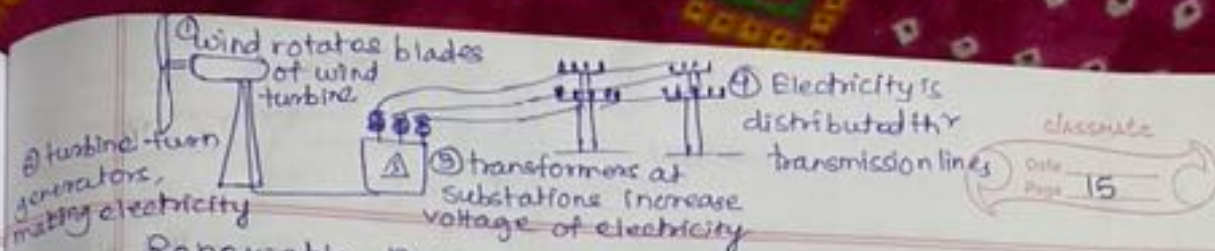 ① wind rotates blades
of wind
turbine
② turbine turn
generators,
making electricity
③ transformers at
substations increase
voltage of electricity
④ Electricity is
distributed thr
transmission lines
classmate
Date
Page 15